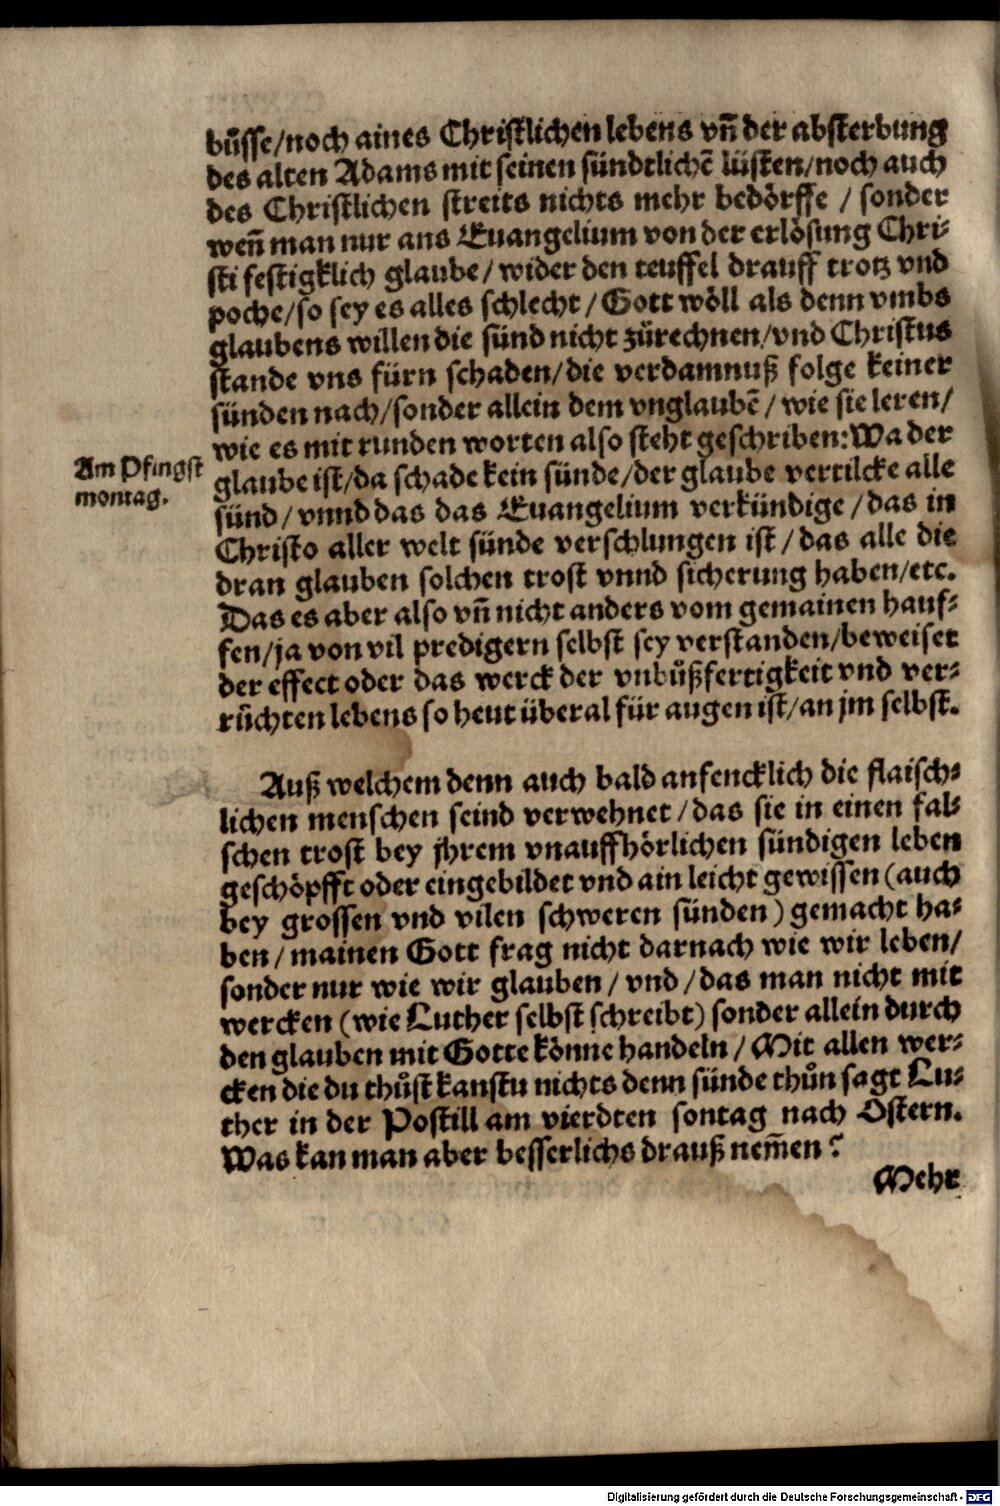 buͦsse/noch aines Christlichen lebens vn̄ der absterbung
des alten Adams mit seinen sündtlichē lüsten/noch auch
des Christlichen streits nichts mehr bedörffe / sonder
wen̄ man nur ans Euangelium von der erlösung Chri-
sti festigklich glaube/ wider den teuffel drauff trotz vnd
poche/so sey es alles schlecht/ Gott wöll als denn vmbs
glaubens willen die sünd nicht zürechnen/vnd Christus
stande vns fürn schaden/die verdamnuß folge keiner
sünden nach/sonder allein dem vnglaubē/ wie sie leren/
wie es mit runden worten also steht geschriben: Wa der
Am Pfingst
montag.
glaube ist/da schade kein sünde/der glaube vertilcke alle
sünd/ vnnd das das Euangelium verkündige/das in
Christo aller welt sünde verschlungen ist/das alle die
dran glauben solchen trost vnnd sicherung haben/etc.
Das es aber also vn̄ nicht anders vom gemainen hauf-
fen/ja von vil predigern selbst sey verstanden/beweiset
der effect oder das werck der vnbuͦßfertigkeit vnd ver-
rüchten lebens so heut überal für augen ist/an jm selbst.
Auß welchem denn auch bald anfencklich die flaisch-
lichen menschen seind verwehnet/das sie in einen fal-
schen trost bey jhrem vnauffhörlichen sündigen leben
geschöpfft oder eingebildet vnd ain leicht gewissen (auch
bey grossen vnd vilen schweren sünden) gemacht ha-
ben/ mainen Gott frag nicht darnach wie wir leben/
sonder nur wie wir glauben/ vnd/das man nicht mit
wercken (wie Luther selbst schreibt) sonder allein durch
den glauben mit Gotte könne handeln/ Mit allen wer-
cken die du thuͦst kanstu nichts denn sünde thuͦn sagt Lu-
ther in der Postill am vierdten sontag nach Ostern.
Was kan man aber besserlichs drauß nem̄en?
Mehr
Digitalisierung gefördert durch die Deutsche Forschungsgemeinschaft - DFG